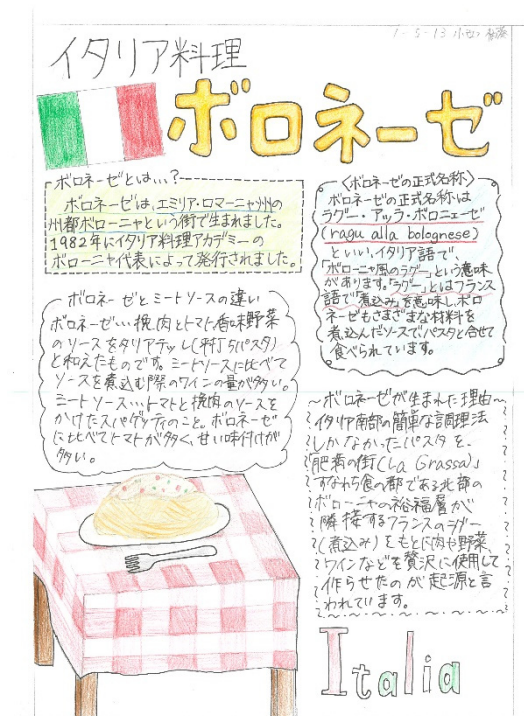 1-5-13
イタリア料理
ボロネーゼ
ボロネーゼとは…?
ボロネーゼは、エミリア・ロマーニャ州の
州都ボローニャという街で生まれました。
1982年にイタリア料理アカデミーの
ボローニャ代表によって発行されました。
〈ボロネーゼの正式名称〉
ボロネーゼの正式名称は
ラグー・アッラ・ボロニェーゼ
(ragu alla bolognese)
といい、イタリア語で、
「ボローニャ風のラグー」という意味
があります。「ラグー」とはフランス
語で"煮込み"を意味し、ボロ
ネーゼもさまざまな材料を
煮込んだソースでパスタと合せて
食べられています。
ボロネーゼとミートソースの違い
ボロネーゼ…挽肉とトマト香味野菜
のソースをタリアテッレ(平打ちパスタ)
と和えたものです。ミートソースに比べて
ソースを煮込む際のワインの量が多い。
ミートソース…トマトと挽肉のソースを
かけたスパゲッティのこと。ボロネーゼ
に比べてトマトが多く、甘い味付けが
多い。
~ボロネーゼが生まれた理由~
イタリア南部の簡単な調理法
しかなかったパスタを、
「肥満の街(La Grassa)」
すなわち食の都である北部の
ボローニャの裕福層が
隣接するフランスのラグー
(煮込み)をもとに肉や野菜、
ワインなどを贅沢に使用して
作らせたのが起源と言
われています。
Italia